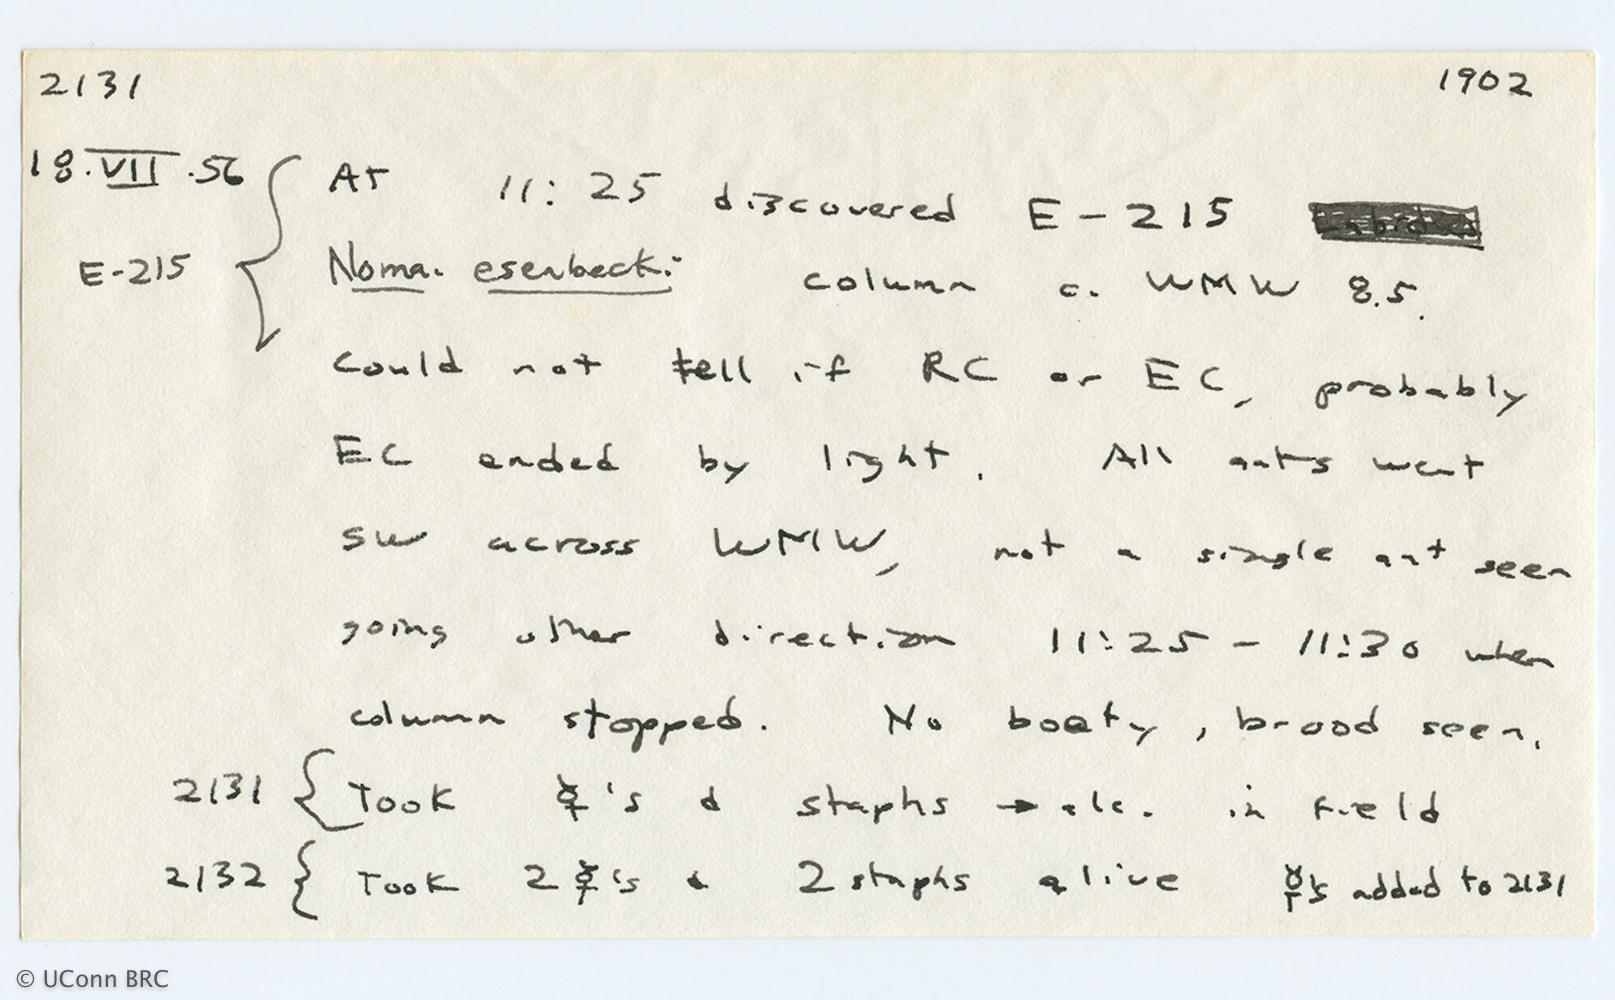 2131 1902
18.VII.56 At 11:25 discovered E-215
E-215 Noma. esenbecki column c. WMW 8.5.
Could not tell if RC or EC, probably
EC ended by light. All ants went
SW across WMW, not a single ant seen
going other direction 11:25 - 11:30 when
column stopped. No booty, brood seen.
2131 { Took ☿'s & staphs → alc. in field
2132 { Took 2 ☿'s & 2 staphs alive ☿'s added to 2131
© UConn BRC